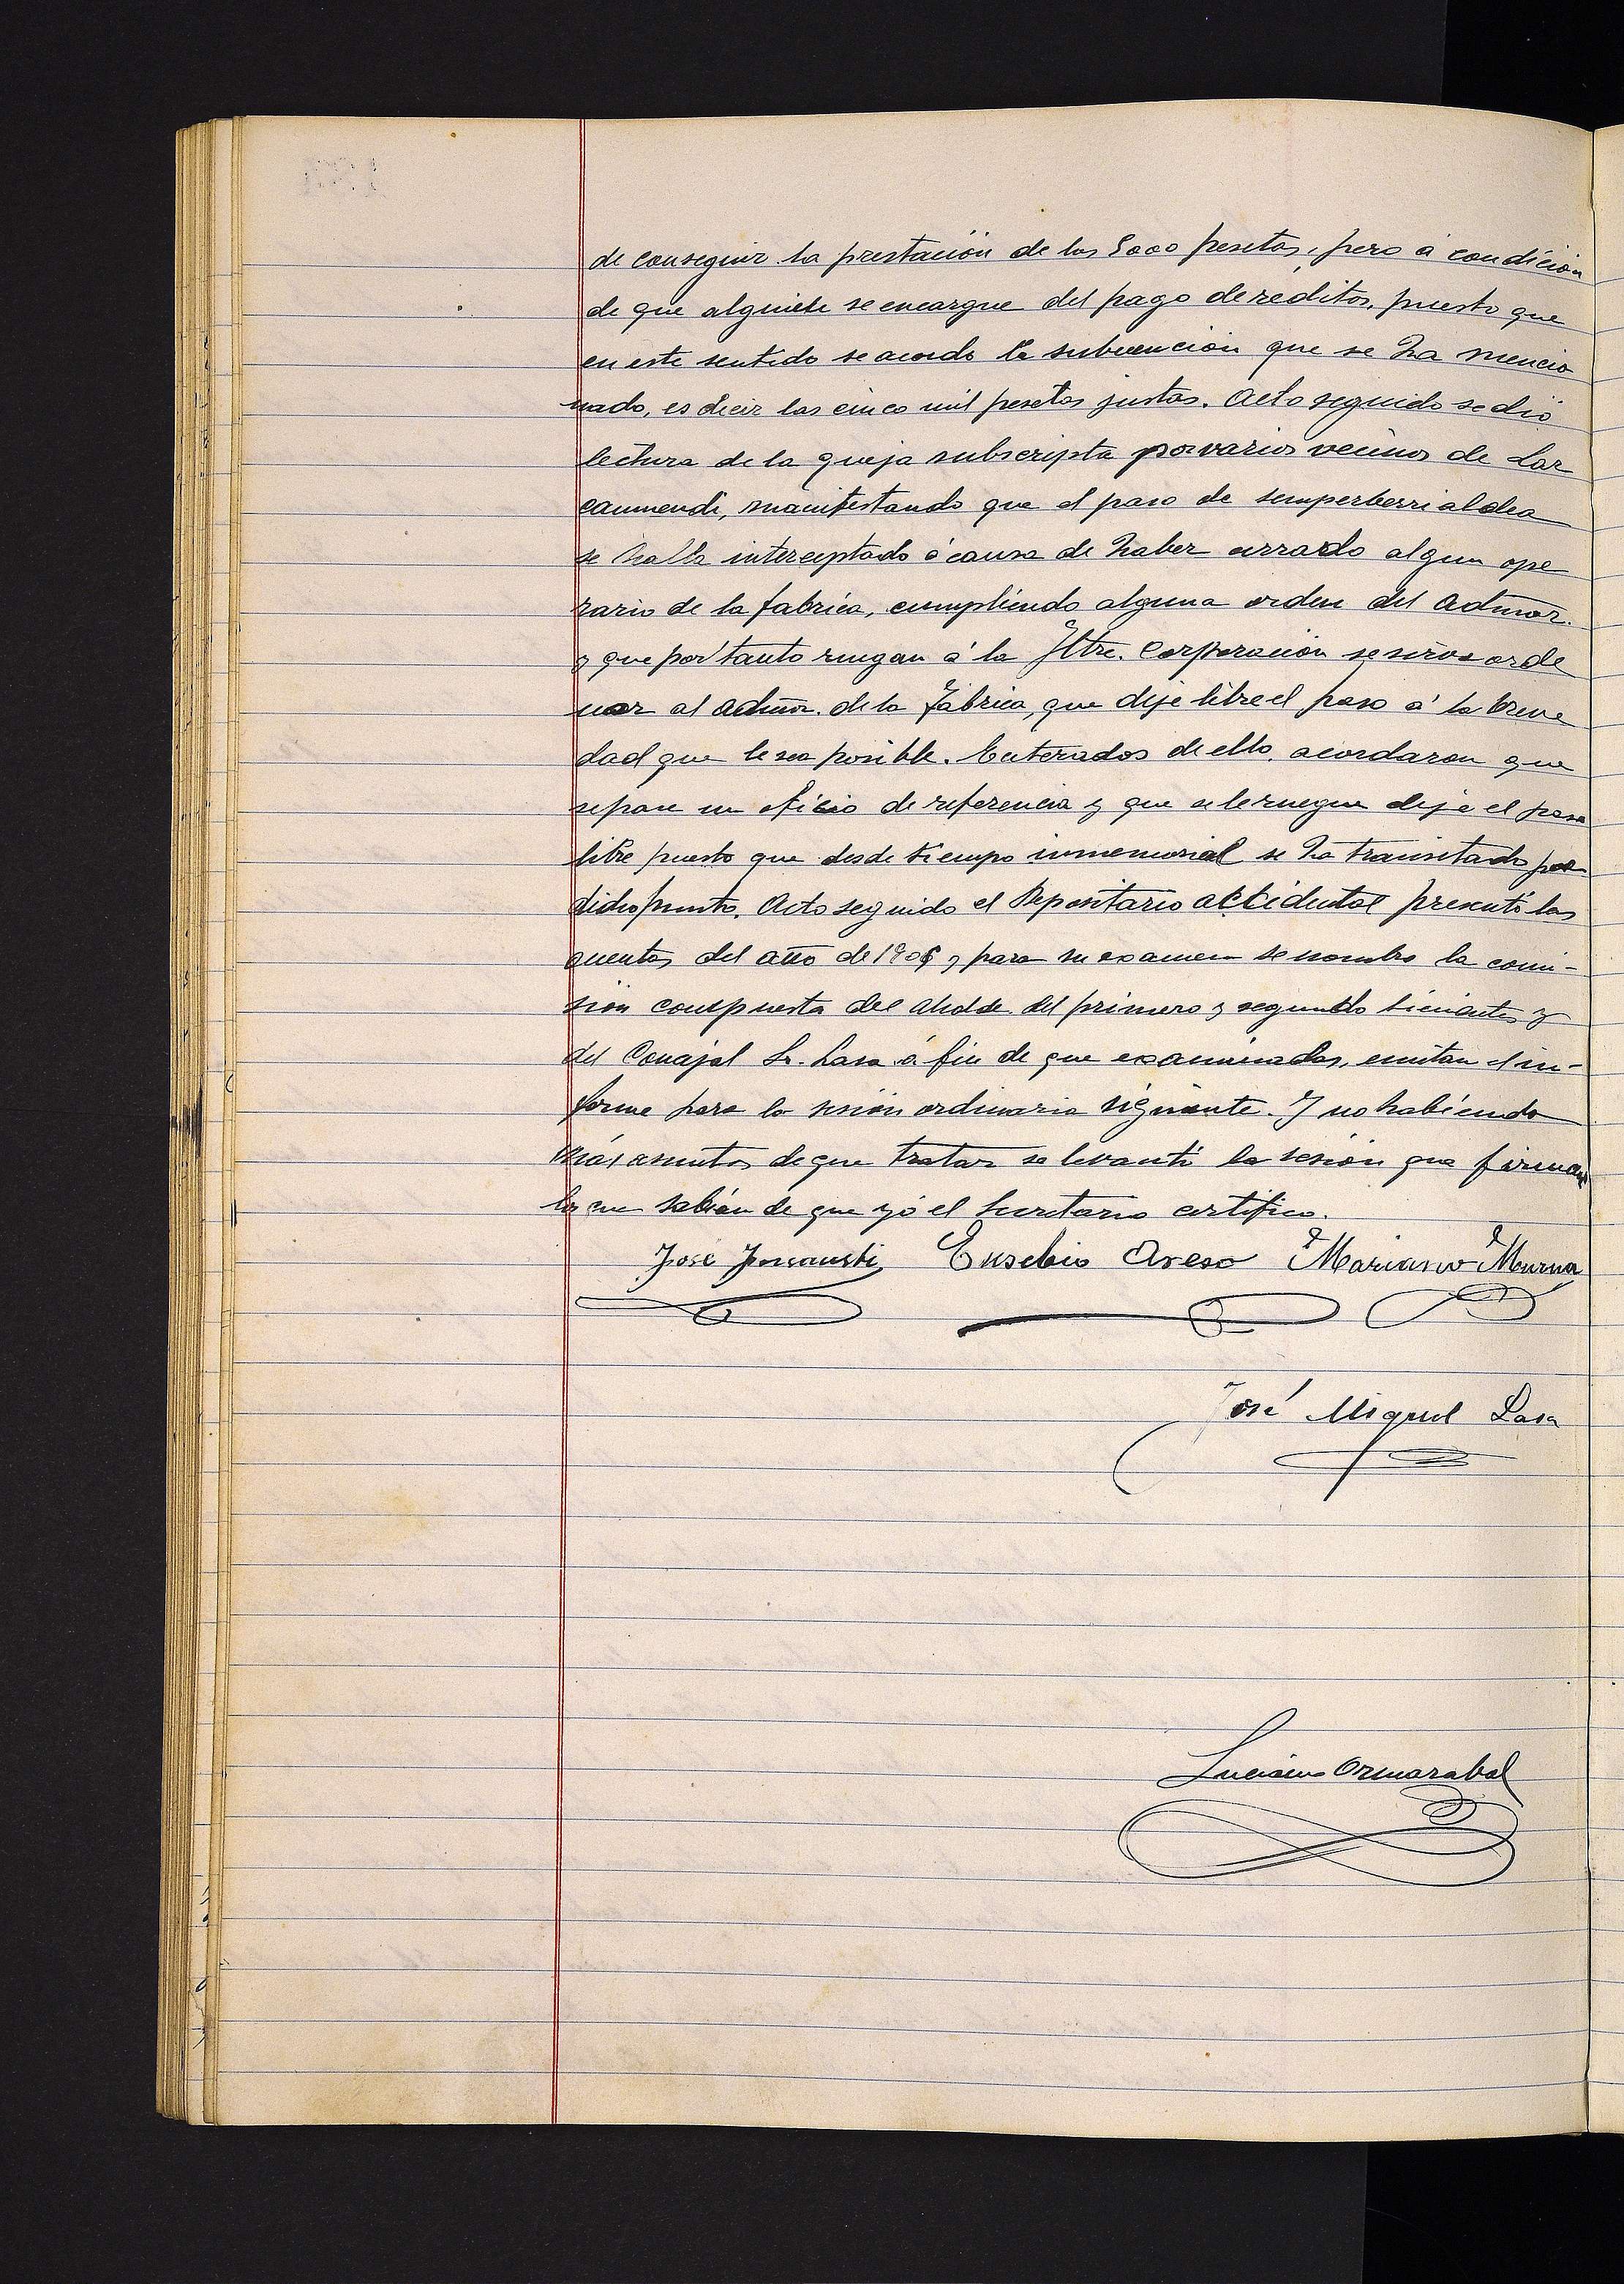 de conseguir la prestación de las 5000 pesetas, pero á condición
de que alguiete se encargue del pago de reditos, puesto que
en este sentido se acordo la subvención que se ha mencio
nado, es decir las cinco mil pesetas justas. Acto seguido se dió
lectura de la queja subscripta por varios vecinos de Lar
caumendi, manifestando que el paso de semperberri aldea
se halla interceptado á causa de haber cerrado algun ope
rario de la fabrica, cumpliendo alguna orden del Admor.
y que por tanto ruegan á la Iltre. Corporación se sirva orde
nar al admor. de la Fabrica, que deje libre el paso á la breve
dad que le sea posible. Enterados de ello, acordaron que
se pase un oficio de referencia y que se le ruegue deje el paso
libre puesto que desde tiempo inmemorial se ha transitado por
dicho punto. Acto seguido el Depositario accidental presentó las
cuentas del año de 1906 y para su examen se nombro la comi-
sión compuesta del Alcalde del primero y segundo tenientes y
del Concejal Sr. Lasa á fin de que examinadas, emitan el in-
forme para la sesión ordinaria siguiente. Y no habiendo
más asuntos de que tratar se levantó la sesión que firman
los que sabían de que yó el Secretario certifico.
José Eusebio Areso Mariano Murua
José Miguel Lasa
Luciano Ormazabal